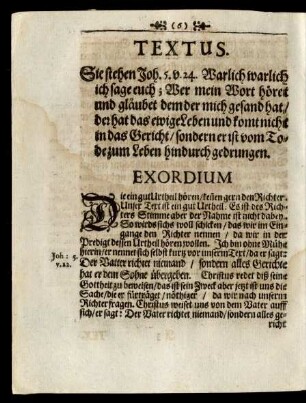 (6)
TEXTUS.
Sie stehen Joh. 5. v. 24. Warlich warlich
ich sage euch; Wer mein Wort höret
und gläubet dem der mich gesand hat/
der hat das ewige Leben und komt nicht
in das Gericht/ sondern er ist vom To-
de zum Leben hindurch gedrungen.
EXORDIUM
Die ein gut Urtheil hören/ kennen gern den Richter.
Unser Text ist ein gut Urtheil. Es ist des Rich-
ters Stimme aber der Nahme ist nicht dabey.
So würds sichs woll schicken/ das wir im Ein-
gange den Richter nennen / da wir in der
Predigt dessen Urtheil hören wollen. Ich bin ohne Mühe
hierin/ er nennet sich selbst kurtz vor unserm Text/ da er sagt:
Joh: 5.
v. 22.
Der Vatter richtet niemand / sondern alles Gerichte
hat er dem Sohne übergeben. Christus redet diß seine
Gottheit zu beweisen/ das ist sein Zweck aber jetzt ist uns die
Sache/ die er fürträget/ nöthiger / da wir nach unserm
Richter fragen. Christus weiset uns von dem Vater auff
sich/ er sagt: Der Vater richtet niemand/ sondern alles ge-
richt